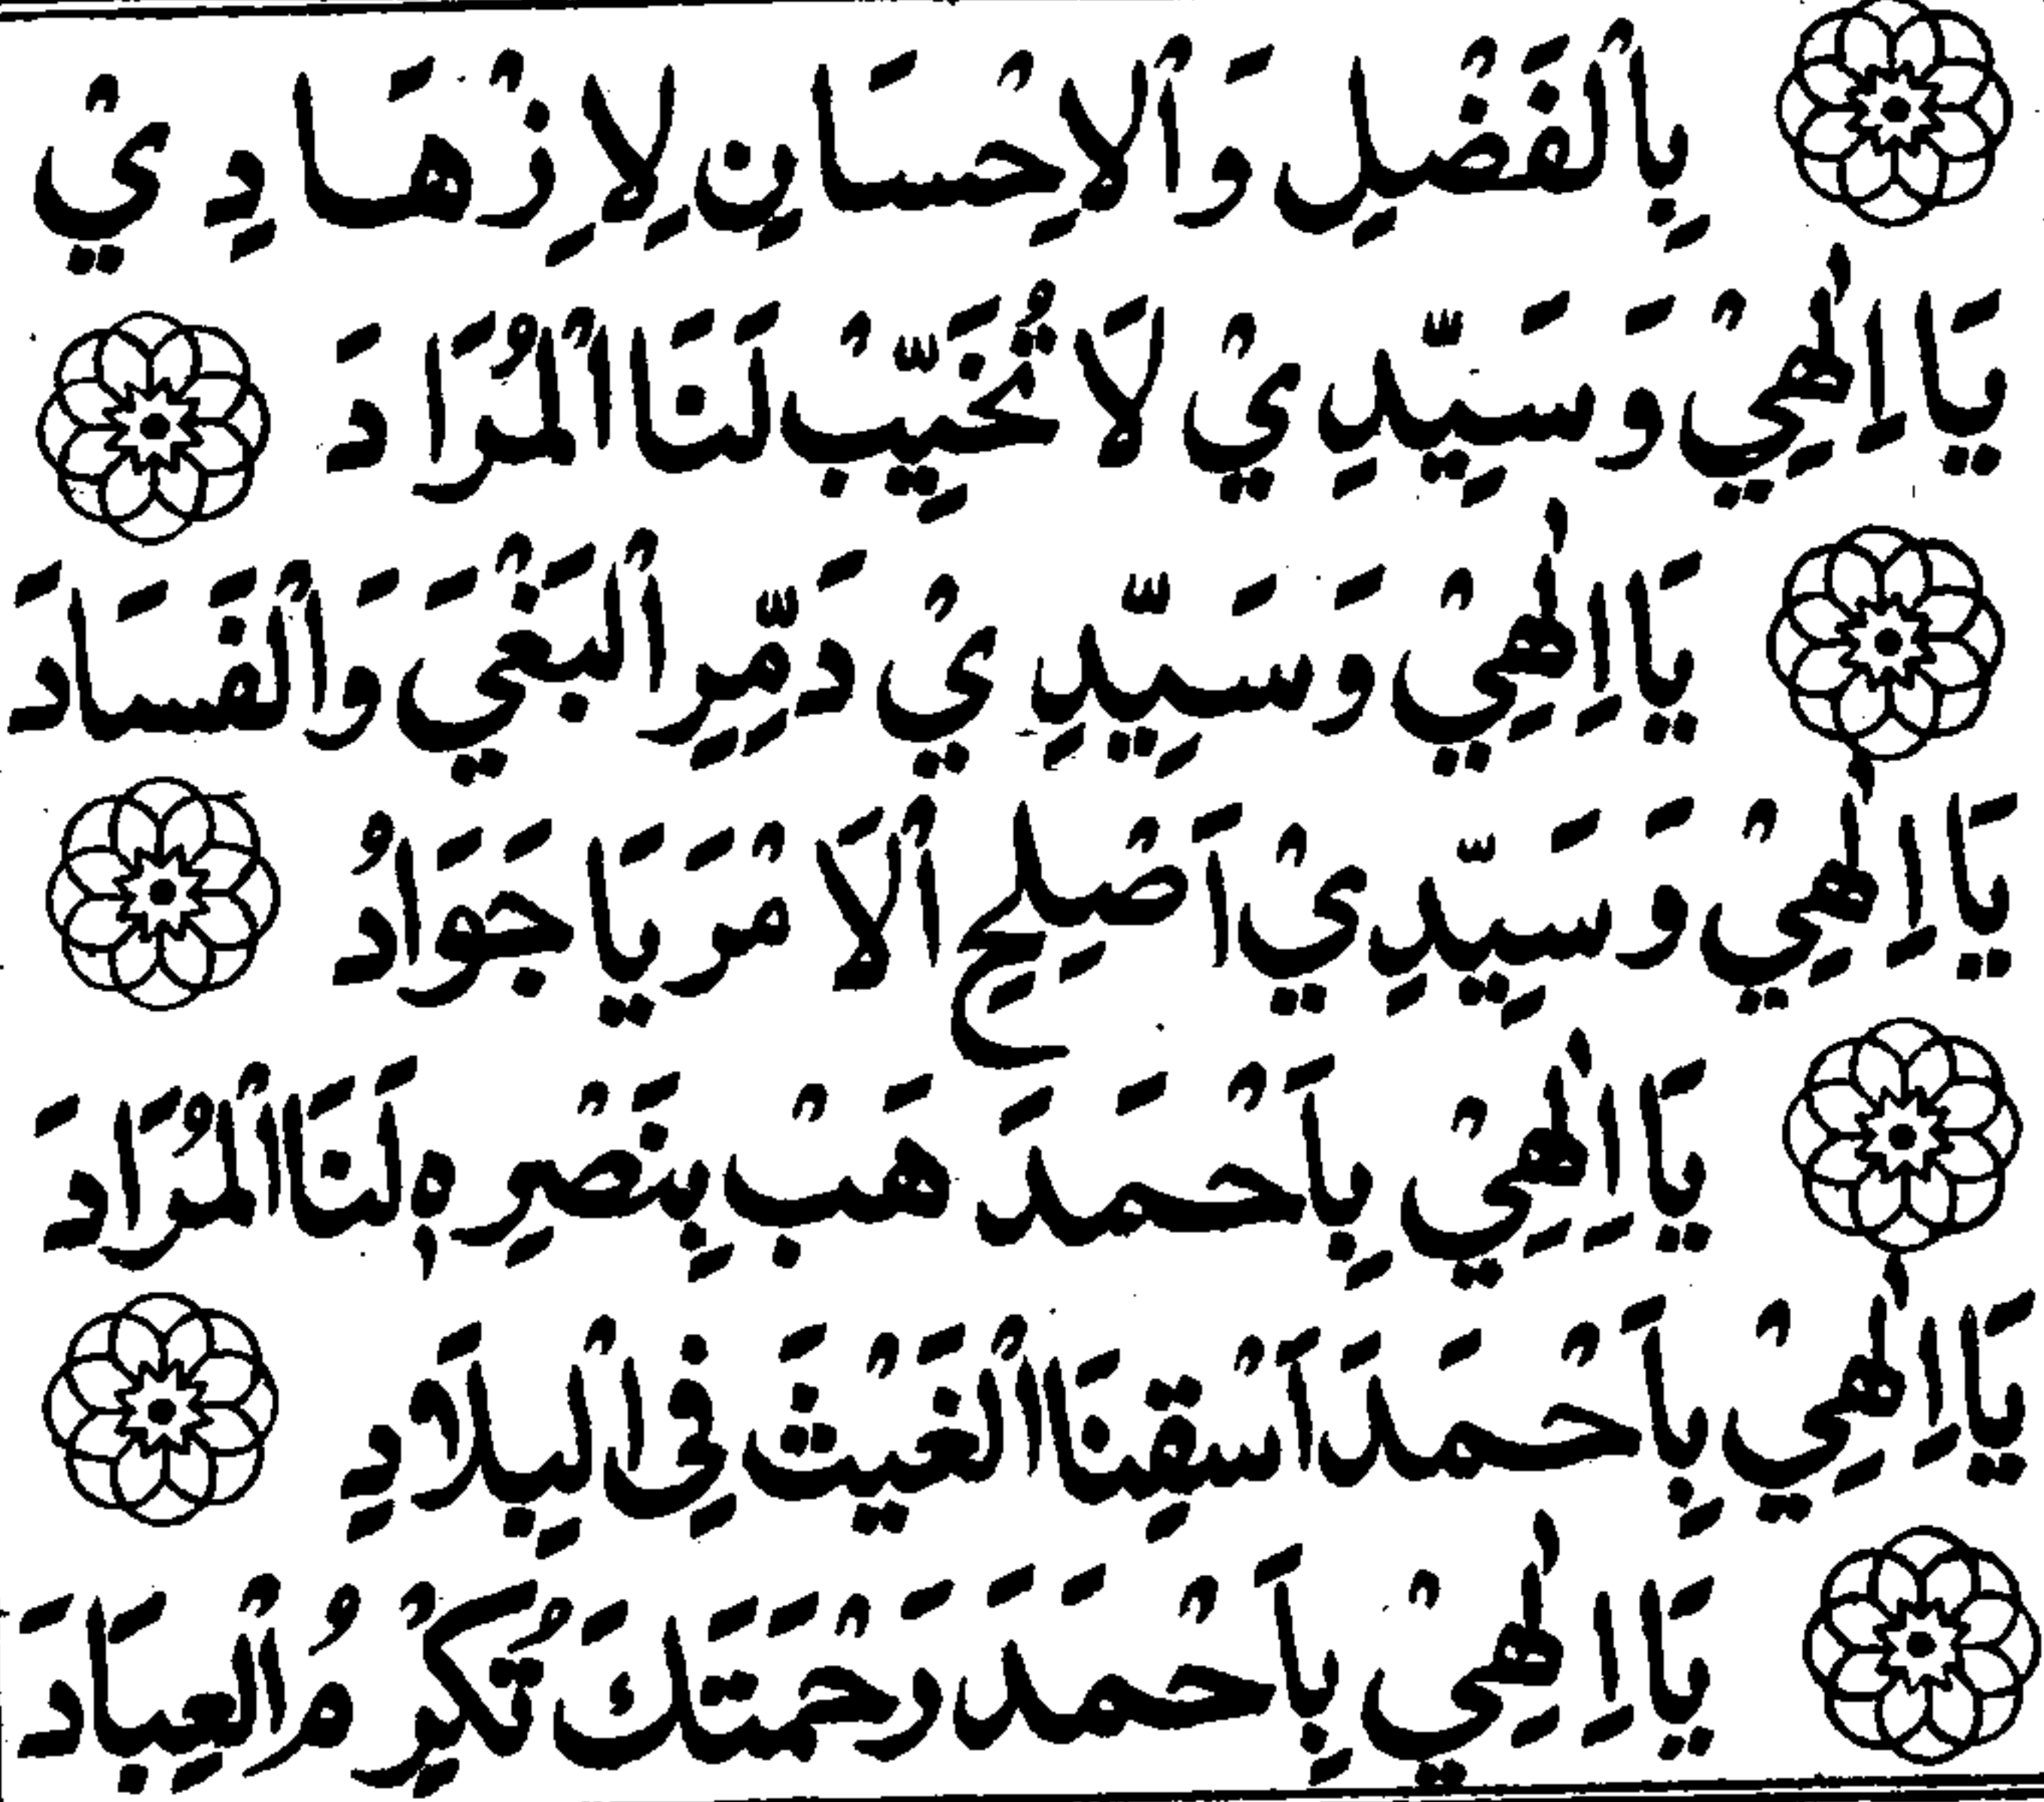 بِاْلفَضْلِ وَاْلاِحْسَانِ لِاِزْهَادِيْ
يَا اِلٰهِيْ وَسَيِّدِيْ لَا تُخَيِّبْ لَنَا اْلمُرَادَ
يَا اِلٰهِيْ وَسَيِّدِيْ دَمِّرِ اْلبَغْيَ وَاْلفَسَادَ
يَا اِلٰهِيْ وَسَيِّدِيْ اَصْلِحِ اْلاَمْرَ يَا جَوَادُ
يَا اِلٰهِيْ بِاَحْمَدَ هَبْ بِنَصْرِهٖ لَنَا اْلمُرَادَ
يَا اِلٰهِيْ بِاَحْمَدَ اَسْقِنَا اْلغَيْثَ فِى اْلبِلَادِ
يَا اِلٰهِيْ بِاَحْمَدَ رَحْمَتَكَ تُكْرِمُ اْلعِبَادَ